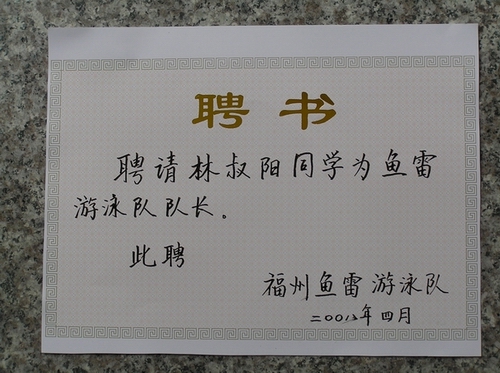 聘书
聘请林叔阳同学为鱼雷
游泳队队长。
此聘
福州鱼雷游泳队
二00八年四月